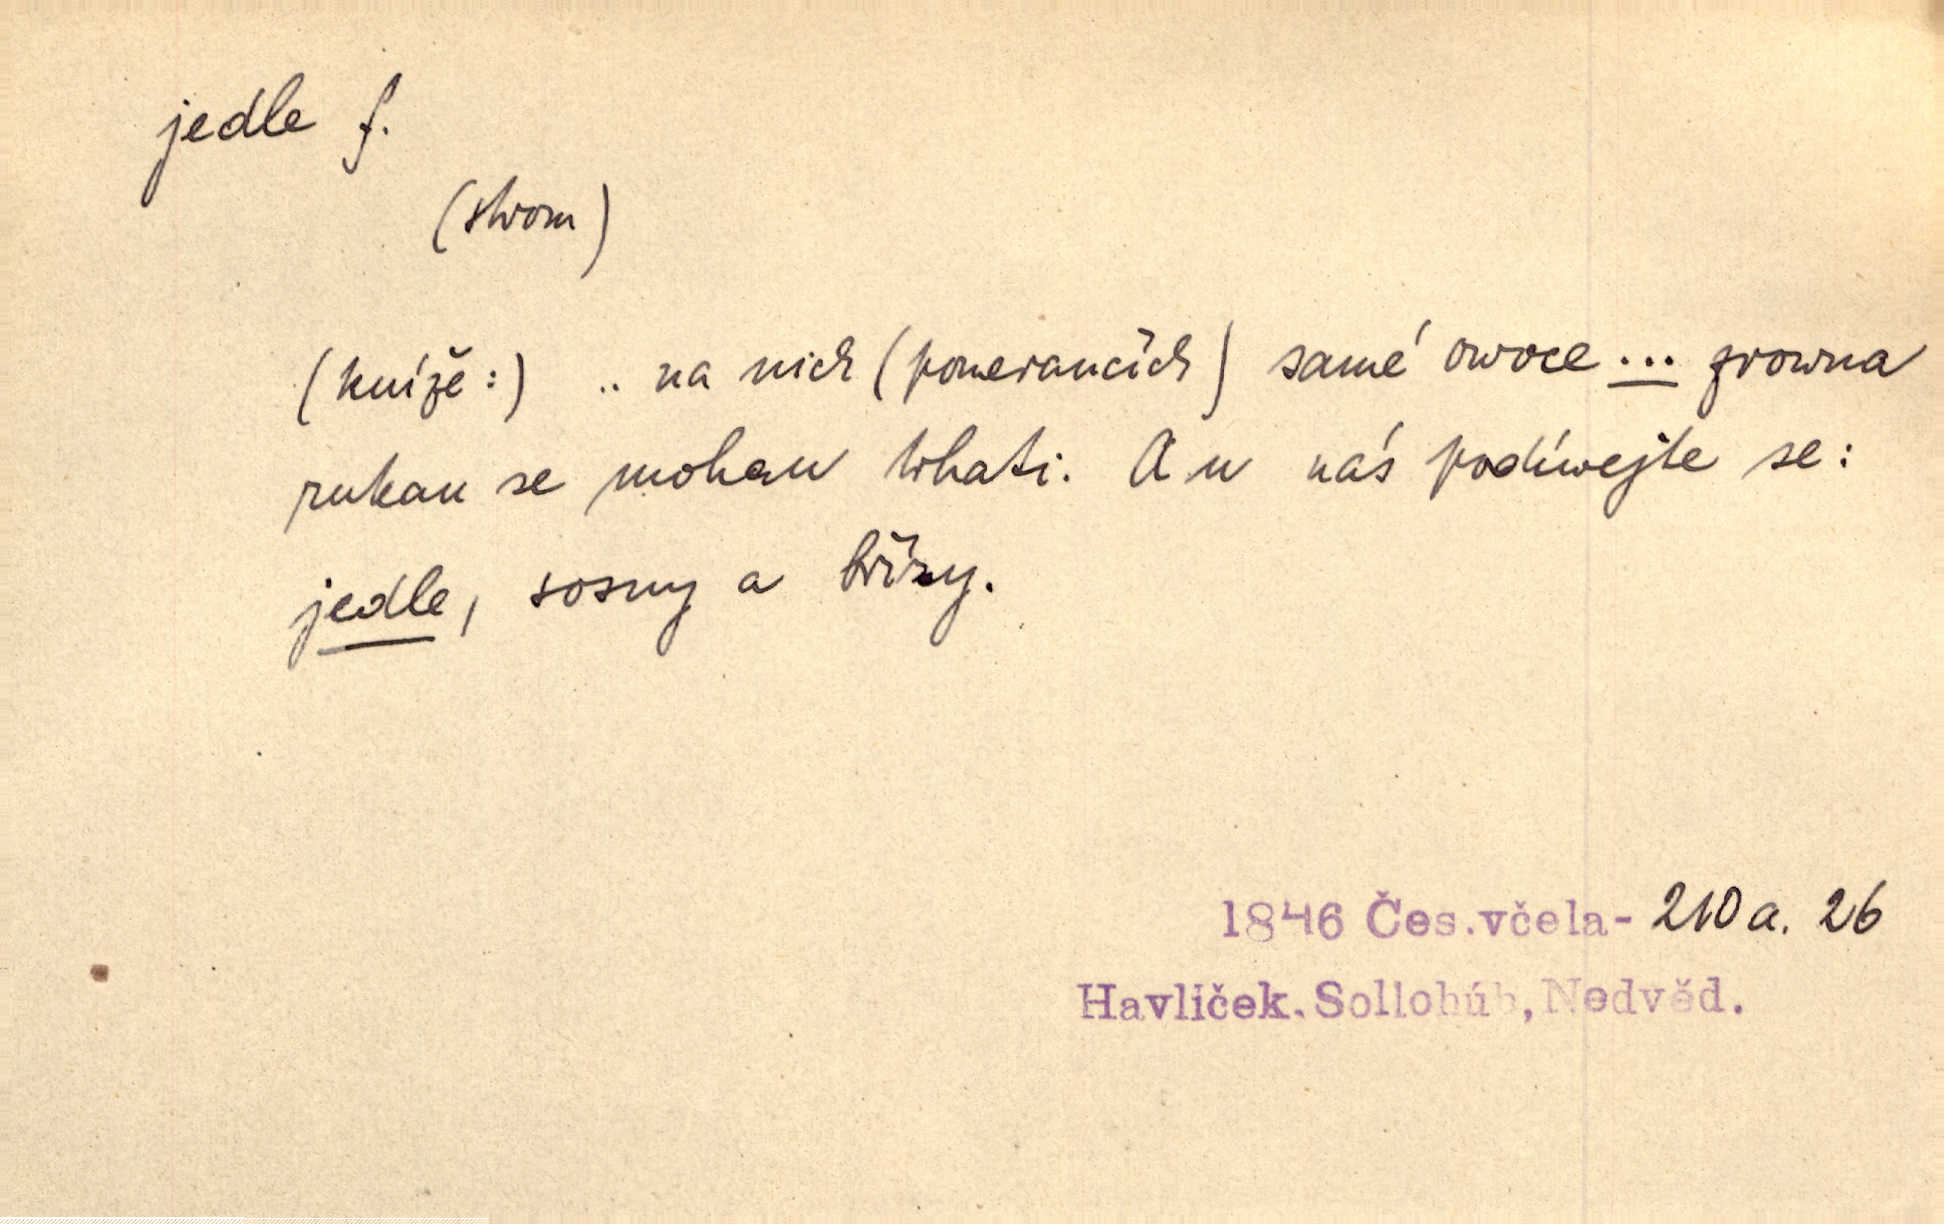 jedle f.
(strom)
(kníže:) .. na nich (pomerančích) samé owoce ... zrowna
rukau se mohau trhati. A u nás podíwejte se:
jedle, sosny a břízy.
1846 Čes.včela- 210 a. 26
Havlíček. Sollohúb, Nedvěd.